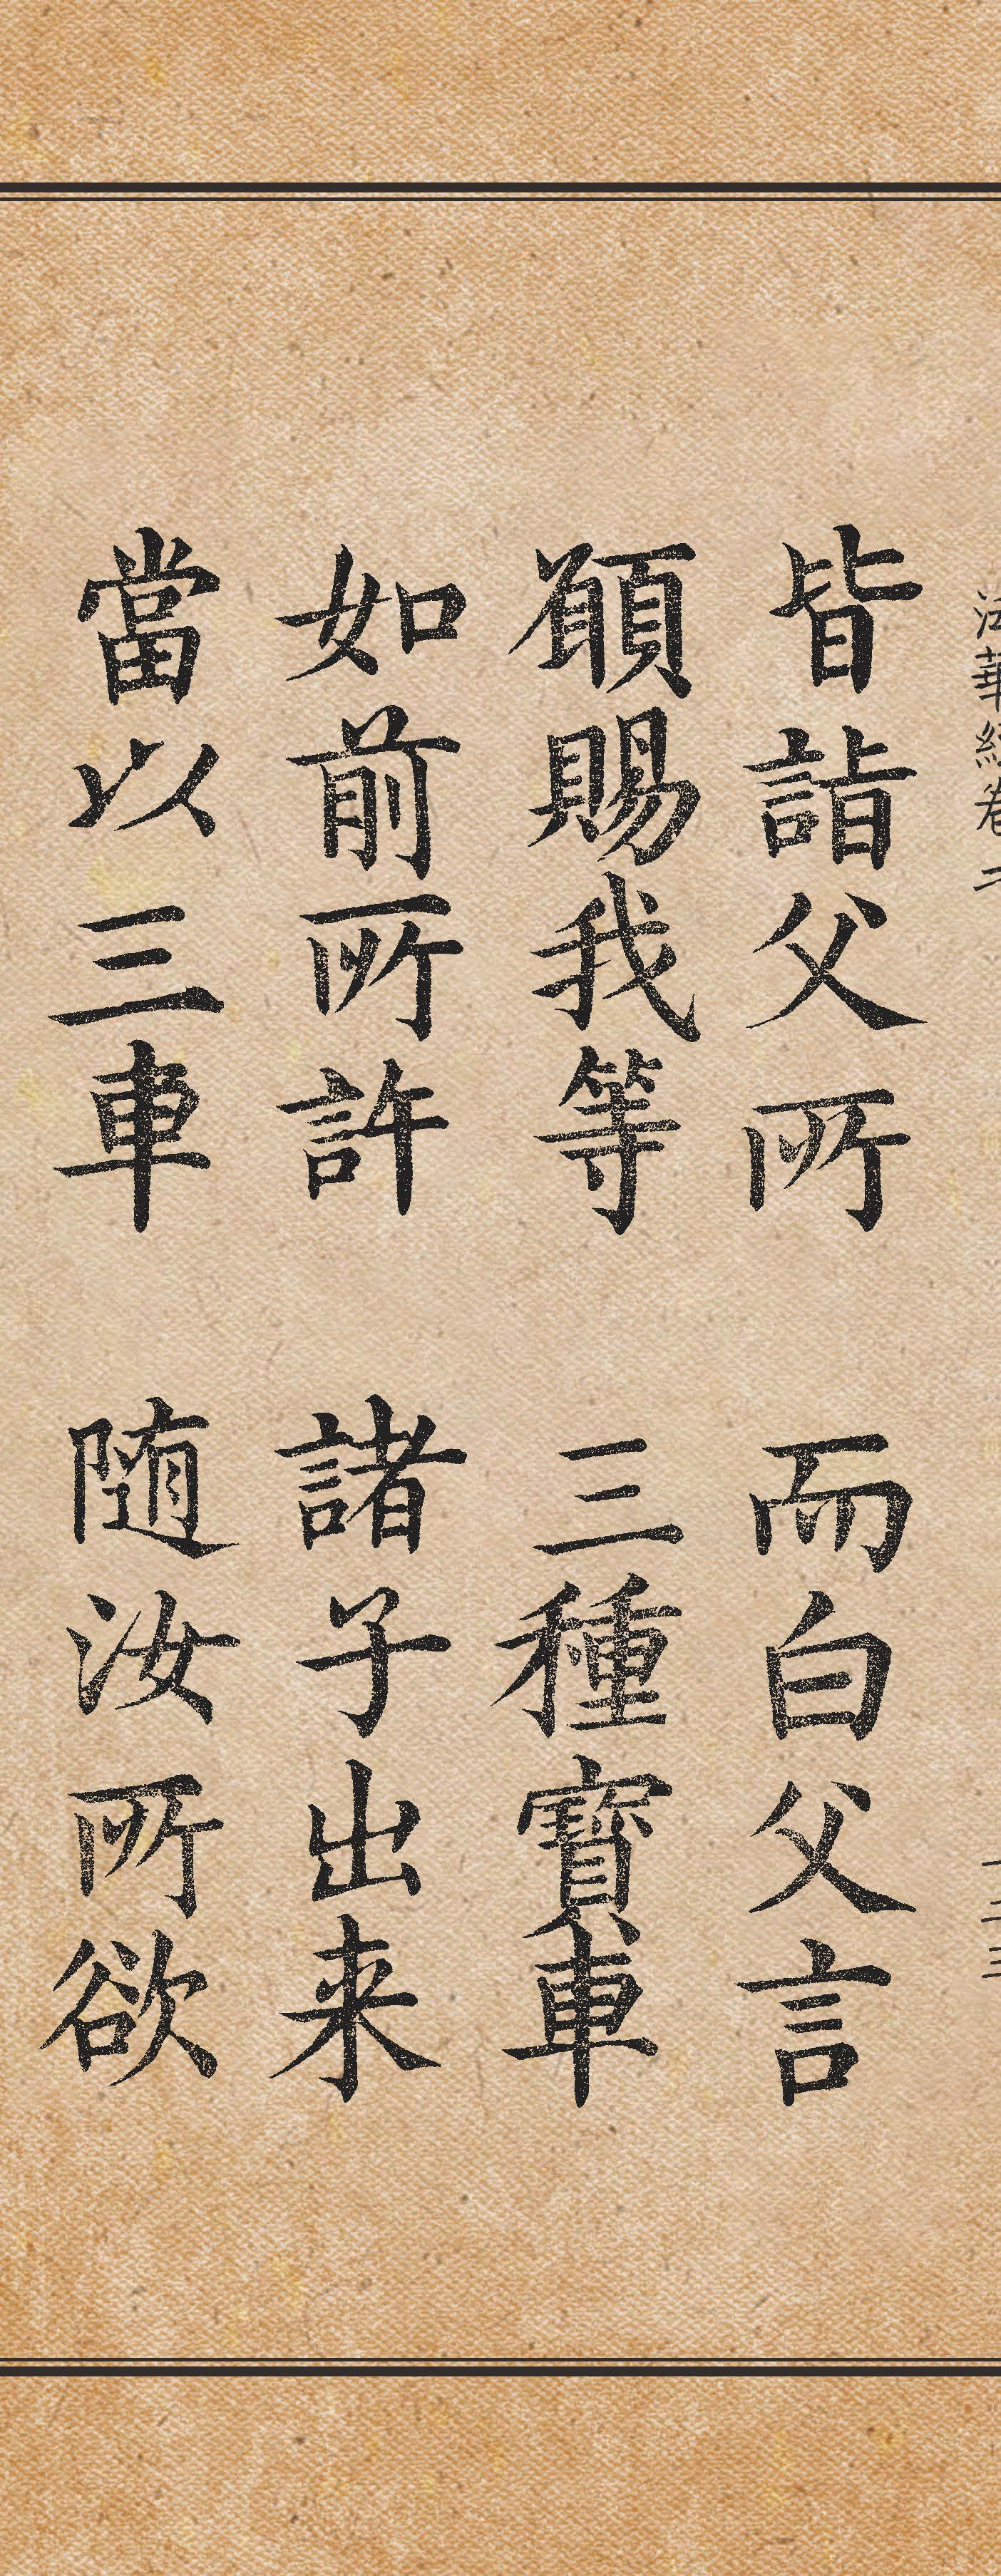 法華經卷二
二三
皆詣父所 而白父言
願賜我等 三種寶車
如前所許 諸子出来
當以三車 随汝所欲